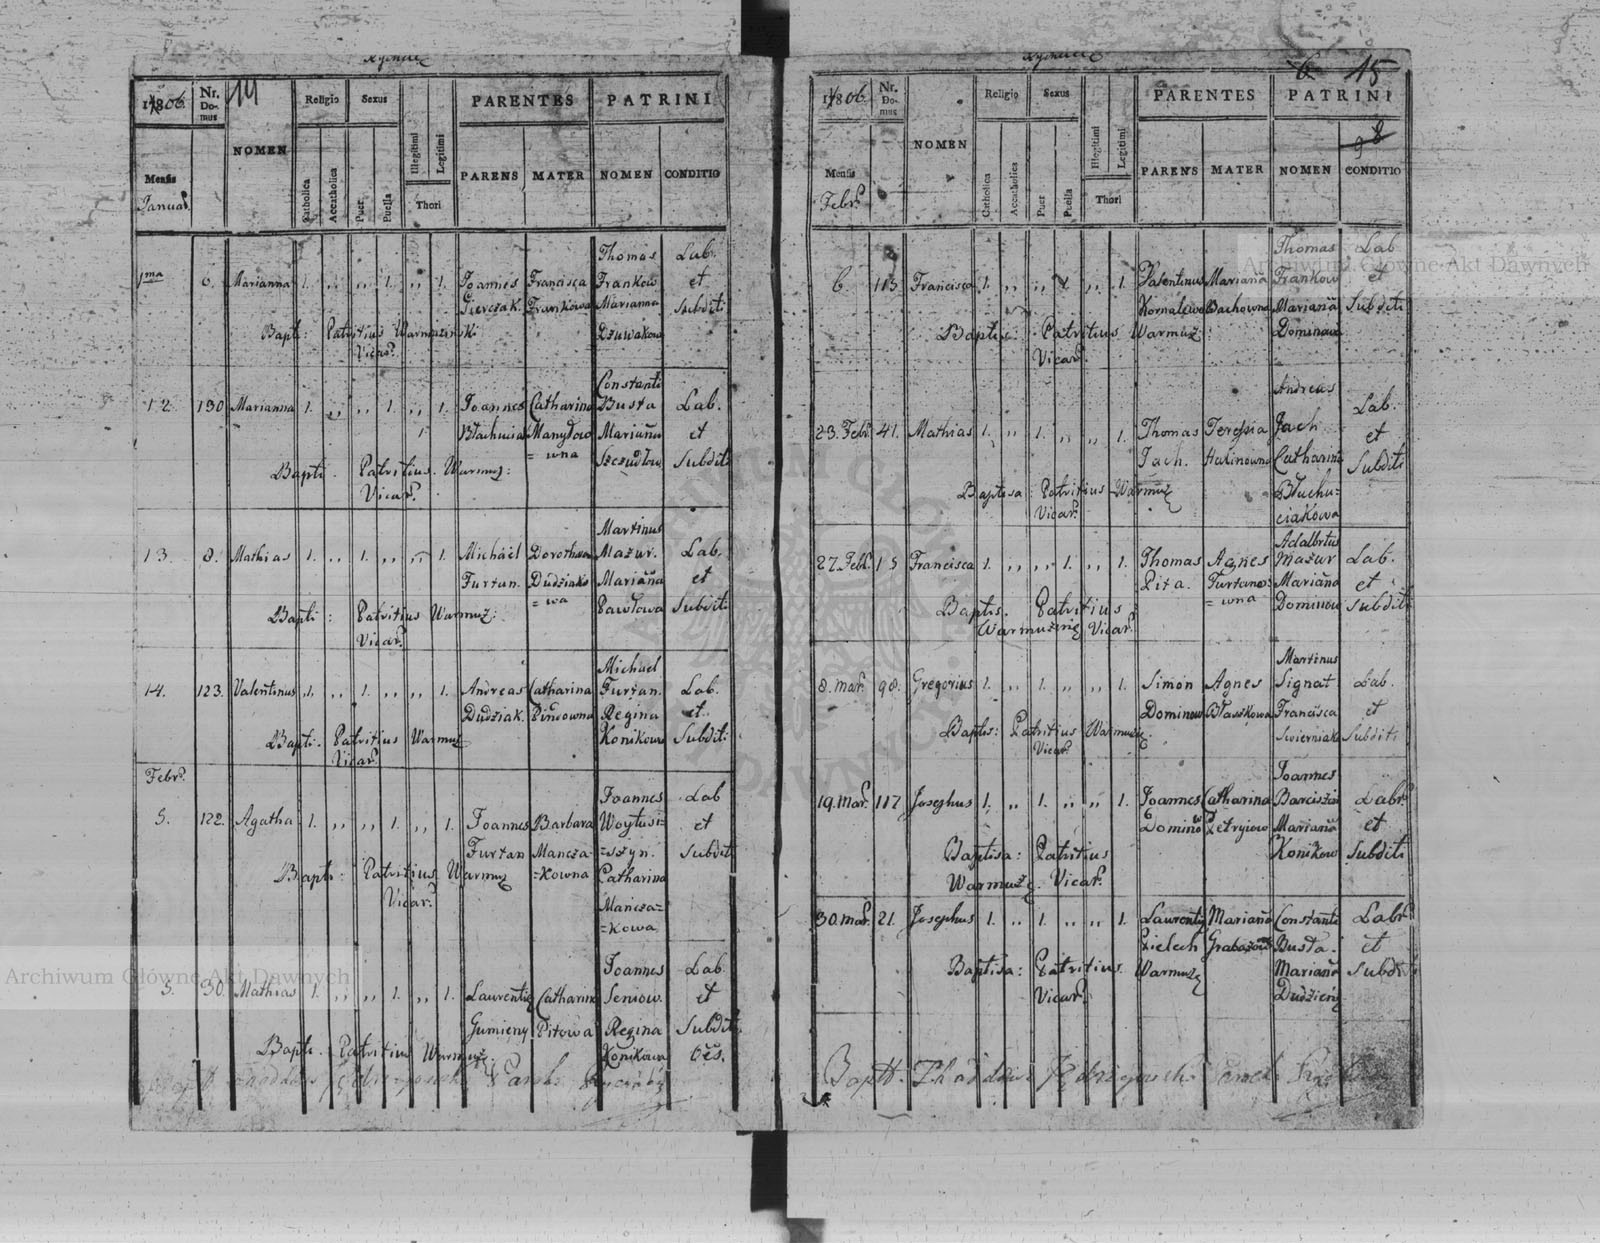 14
1806.
Nr. Domus
NOMEN
Religio
Sexus
Catholica
Accatholica
Puer
Puella
Illegitimi
Legitimi
Thori
PARENTES
PARENS
MATER
PATRINI
NOMEN
CONDITIO
Mensis
Januar.
Thomas Lab.
1ma 6. Marianna 1. ,, ,, 1. ,, 1. Joannes Francisca Frankow et
Frankowa Marianna Subditi
Bapt: Patritius Warmuzinski
Vicar.
Constanti
12 130 Marianna 1. ,, ,, 1. ,, 1. Joannes Catharina Busta Lab.
Manydow Mariañna et
=wna Subditi
Bapti. Patritius Warmuz:
Vicar.
Martinus
13. 8. Mathias 1. ,, 1. ,, ,, 1. Michael Dorothea Mazur. Lab.
Furtan. Dudziako Mariaña et
=wa Pawłowa Subditi
Bapti: Patritius Warmuz:
Vicar.
Michael
14. 123. Valentinus 1. ,, 1. ,, ,, 1. Andreas Catharina Furtan. Lab.
Dudziak. Regina et
Konikowa Subditi
Bapti. Patritius Warmuz
Vicar.
Febr.
5. 122. Agatha 1. ,, ,, 1. ,, 1. Joannes Barbara Joannes Lab
Woytusi= et
Furtan Mancza= =szyn. Subditi
=kowna Catharina
Bapti: Patritius Warmuz
Vicar.
Mancza=
=kowa
Joannes Lab
5. 30. Mathias 1. ,, ,, 1. ,, 1. Laurenti Catharina Seniow. et
Gumieny Pitowa Regina Subditi
Konikowa
Bapti. Patritius Warmuz
6 15
1806.
Nr. Domus
NOMEN
Religio
Sexus
Catholica
Accatholica
Puer
Puella
Illegitimi
Legitimi
Thori
PARENTES
PARENS
MATER
PATRINI
NOMEN
CONDITIO
Mensis
Febr.
Thomas Lab
6. 113 Francisca 1. ,, ,, 1. ,, 1. Valentinus Mariaña Frankow et
Bachowna Mariaña Subditi
Baptis: Patritius Warmuz: Dominowa
Vicar.
Andreas
23. Febr. 41. Mathias 1. ,, 1. ,, ,, 1. Thomas Teressia Jach Lab.
Jach. Halinowna Catharina et
Subditi
Baptisa: Patritius Warmuz
Vicar. Błachu=
ciakowa
Adalbrtus
27. Febr. 15 Francisca 1. ,, ,, 1. ,, 1. Thomas Agnes Mazur Lab.
Pita. Furtano= Mariaña et
=wna Dominow Subditi
Baptis. Patritius
Warmuz Vicar.
Martinus
8. Mar. 98. Gregorius 1. ,, 1. ,, ,, 1. Simon Agnes Signat Lab.
Dominow Błaszkowa Francisca et
Swierniak Subditi
Baptis: Patritius Warmuz
Vicar.
Joannes
19. Mar. 117 Josephus 1. ,, 1. ,, ,, 1. Joannes Catharina Lab.
Domino Mariaña et
Konikow Subditi
Baptisa: Patritius
Warmuz. Vicar.
30. Mar. 21. Josephus 1. ,, 1. ,, ,, 1. Laurenti Mariaña Constanti Lab.
Zielech Busta. et
Mariaña Subditi
Baptisa: Patritius. Warmuz
Vicar.
Archiwum Główne Akt Dawnych
Archiwum Główne Akt Dawnych